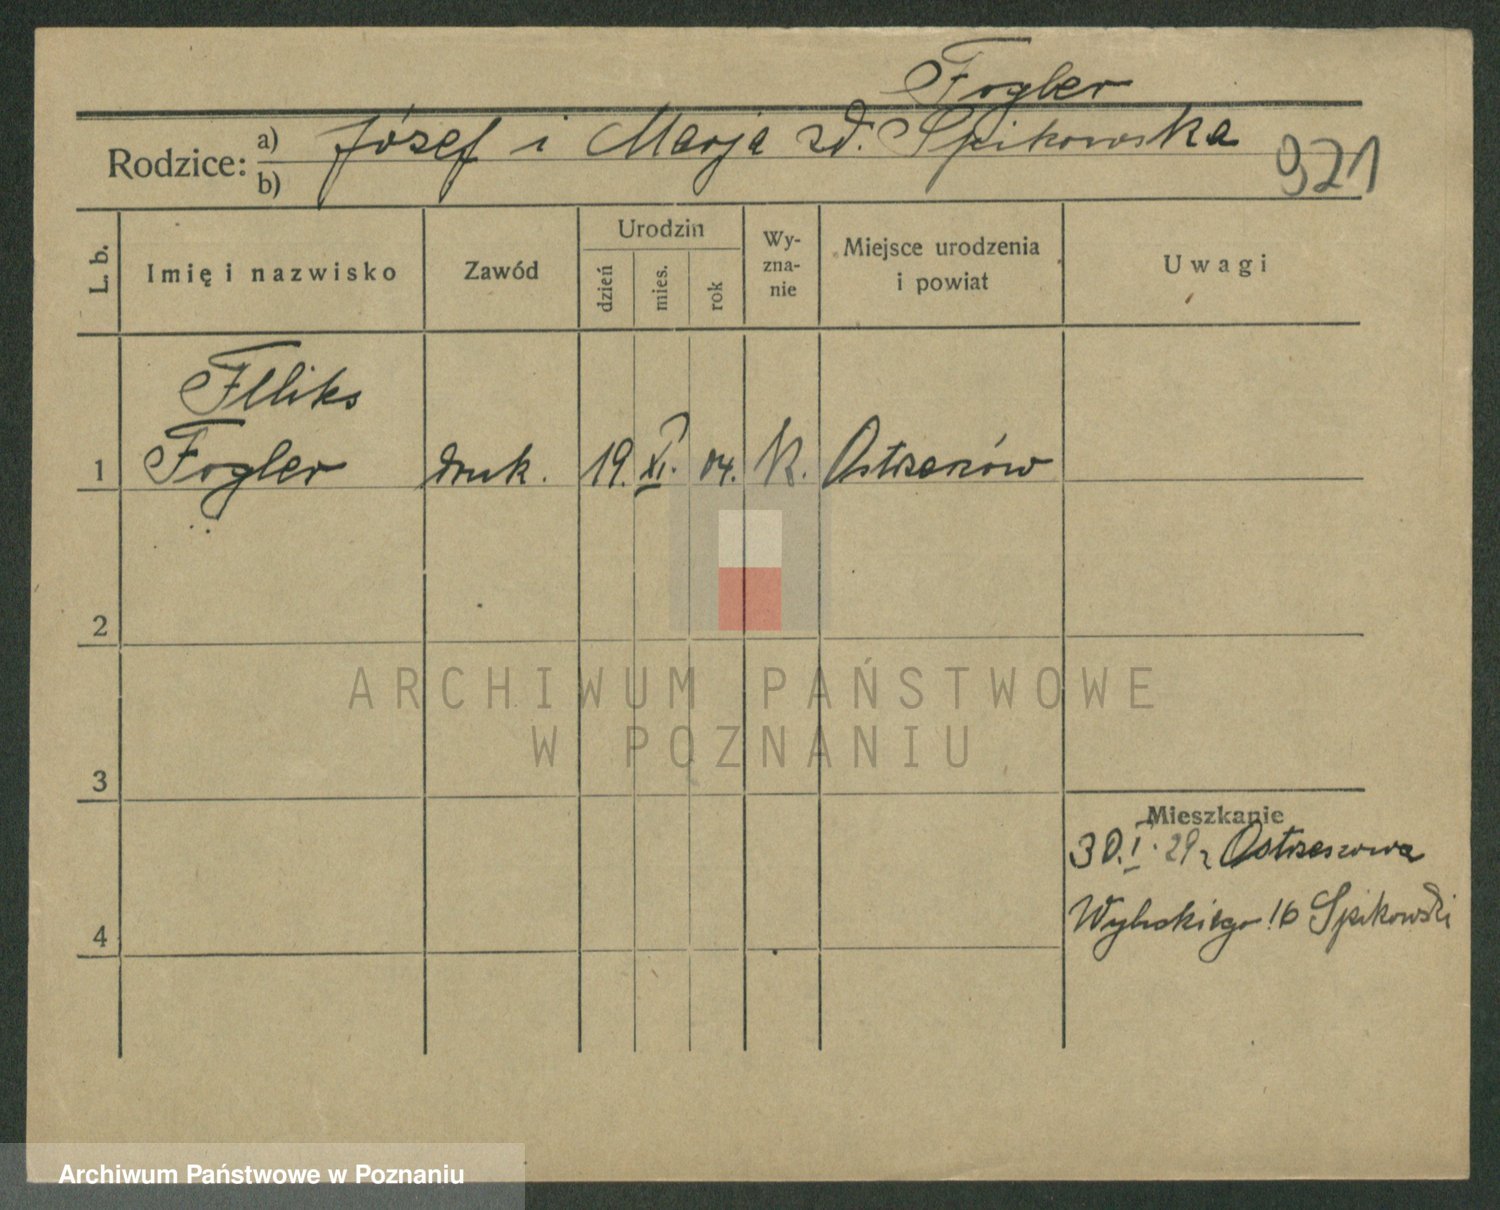 Fogler
Rodzice: a) Józef i Marja zd. Spikowska
b)
921
L. b. Imię i nazwisko Zawód Urodzin dzień mies. rok Wy-zna-nie Miejsce urodzenia i powiat Uwagi
Feliks
1 Fogler druk. 19. XI. 04. K. Ostrzeszów
2
ARCHIWUM PAŃSTWOWE
W POZNANIU
3
Mieszkanie
30. I. 29 z Ostrzeszowa
4 Wybickiego 16 Spikowski
Archiwum Państwowe w Poznaniu